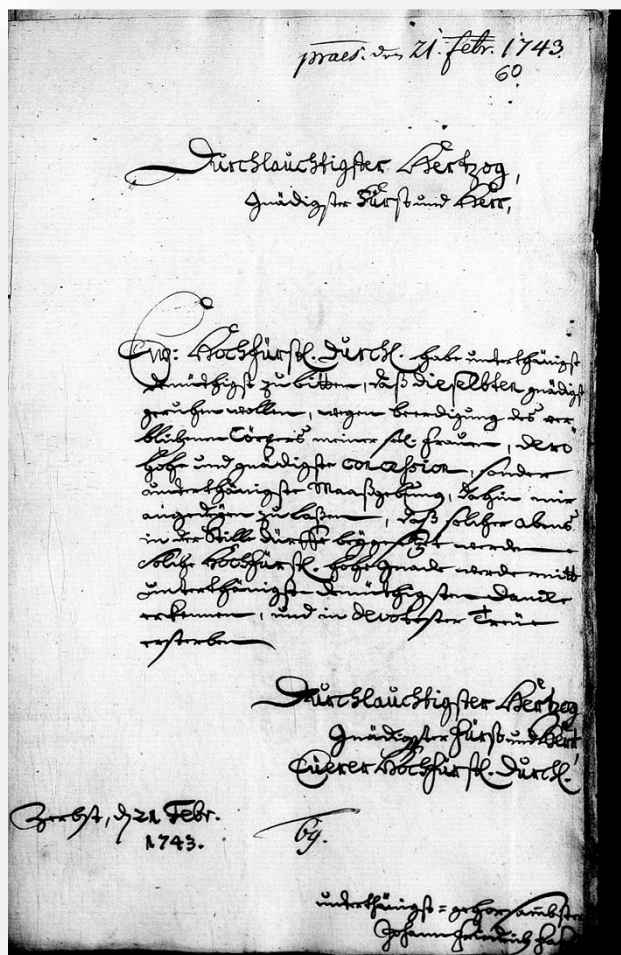 praes. den 21. febr. 1743.
60
Durchlauchtigster Hertzog,
Gnädigster Fürst und Herr,
Ew: Hochfürstl. Durchl. habe unterthänigst
demüthigst zu bitten, daß dieselbten gnädigst
geruhen wollen, wegen beerdigung des ver
blichenen Cörpers meiner sel. Frauen, dero
hohe und gnädigste concession, sonder
unterthänigste Maaßgebung, dahin mir
angedeyen zu laßen, daß solcher Abends
in der Stille dürffe beygesetzt werden
Solche Hochfürstl. hohe Gnade werde mitt
unterthänigst demüthigsten Dancke
erkennen, und in devotester Treüe
ersterben
Durchlauchtigster Hertzog
Gnädigster Fürst und Herr,
Eüerer Hochfürstl. Durchl.
Zerbst, d 21 Febr.
1743.
unterthänigst=gehorsambster
Johann Friedrich